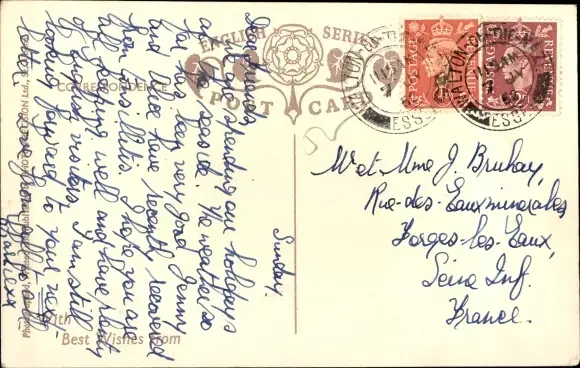 ENGLISH SERIES
CORRESPONDENCE
POST CARD
With
Best Wishes from
POSTAGE REVENUE
POSTAGE REVENUE
WALTON-ON-THE-NAZE
ESSEX
WALTON-ON-THE-NAZE
ESSEX
Sunday.
Dear Friends,
We are spending our holidays
at the seaside. The weather so
far has been very good. Jenny
and Alice have recently recovered
from tonsillitis. I hope you are
all keeping well and have plenty
of English visitors. I am still
looking forward to your next
visit
M et Mme J. Bruhay,
Rue-des-Eauxminerales
Forges-les-Eaux,
Seine Inf.
France.